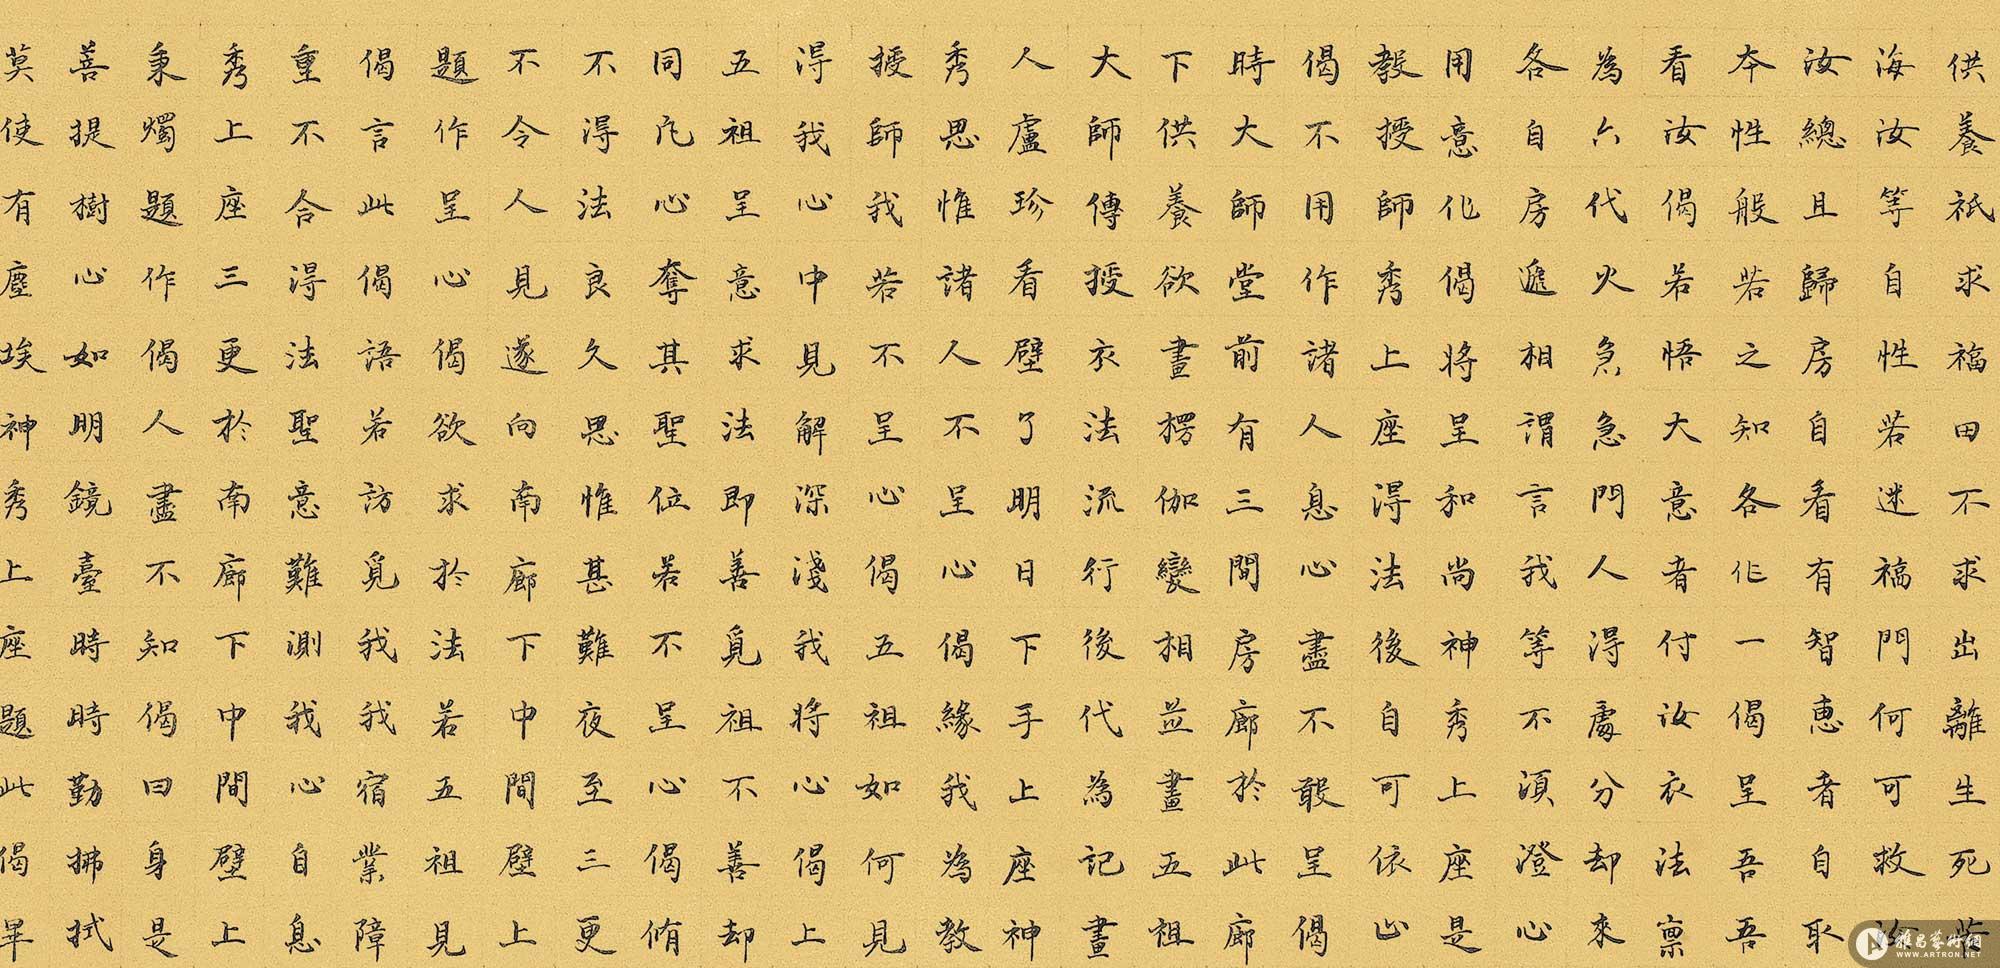 供養祇求福田不求出離生死苦
海汝等自性若迷福門何可救汝
汝總且歸房自看有智惠者自取
本性般若之知各作一偈呈吾吾
看汝偈若悟大意者付汝衣法稟
為六代火急急門人得處分却來
各自房遞相謂言我等不須澄心
用意作偈將呈和尚神秀上座是
教授師秀上座得法後自可依止
偈不用作諸人息心盡不敢呈偈
時大師堂前有三間房廊於此廊
下供養欲畫楞伽變相並畫五祖
大師傳授衣法流行後代為記畫
人盧珍看壁了明日下手上座神
秀思惟諸人不呈心偈緣我為教
授師我若不呈心偈五祖如何見
得我心中見解深淺我將心偈上
五祖呈意求法即善覓祖不善却
同凡心奪其聖位若不呈心偈脩
不得法良久思惟甚難夜至三更
不令人見遂向南廊下中間壁上
題作呈心偈欲求於法若五祖見
偈言此偈語若訪覓我我宿業障
重不合得法聖意難測我心自息
秀上座三更於南廊下中間壁上
秉燭題作偈人盡不知偈曰身是
菩提樹心如明鏡臺時時勤拂拭
莫使有塵埃神秀上座題此偈畢
雅昌藝術網
WWW.ARTRON.NET